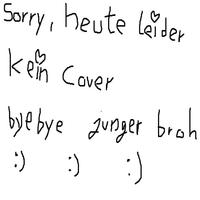 Sorry, heute leider
kein Cover
bye bye junger broh
:) :) :)